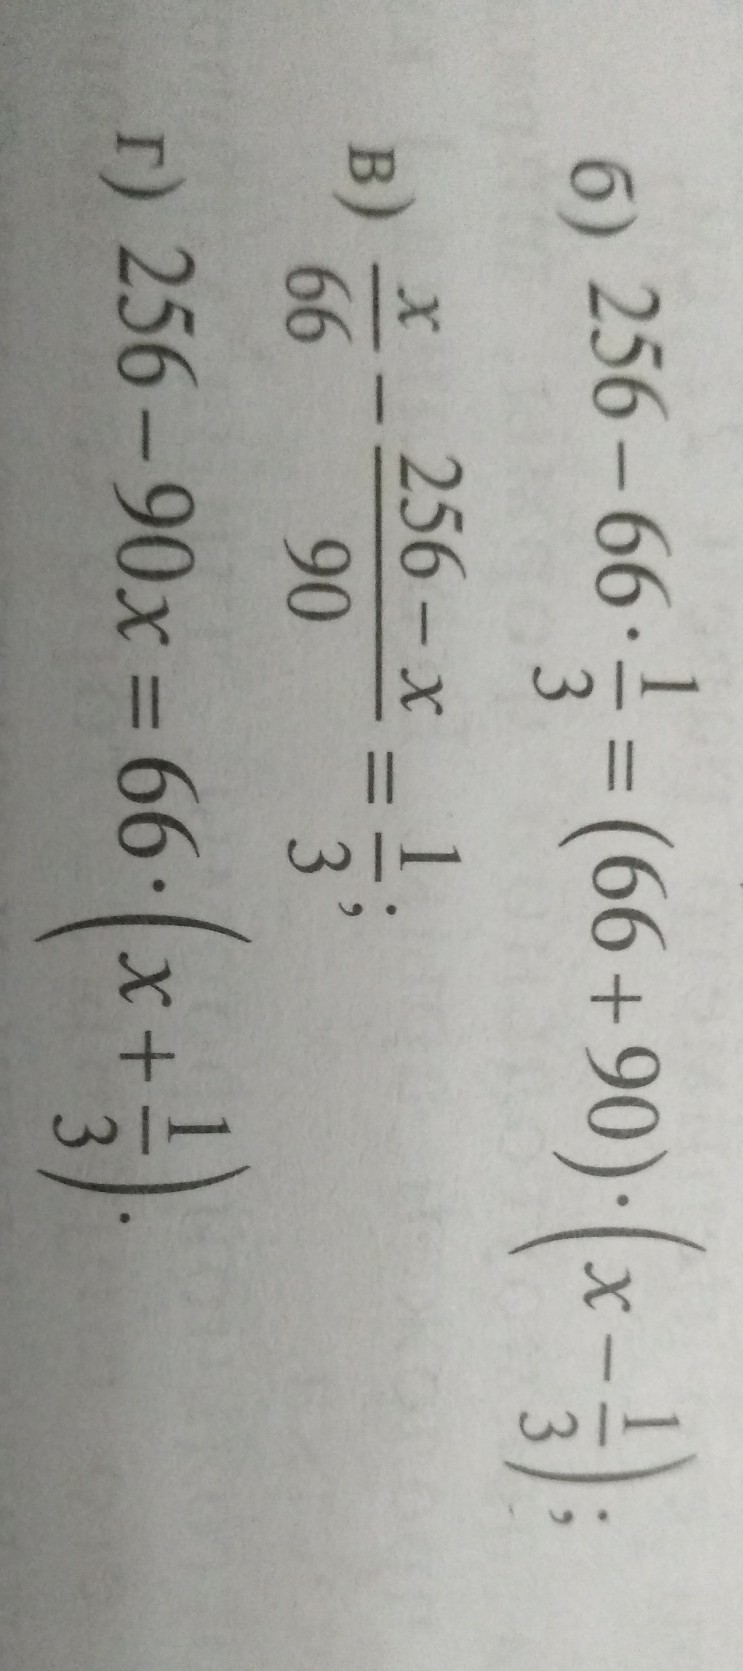 б) 256 − 66 · 1/3 = (66 + 90) · (x − 1/3);
в) x/66 − (256 − x)/90 = 1/3;
г) 256 − 90x = 66 · (x + 1/3).